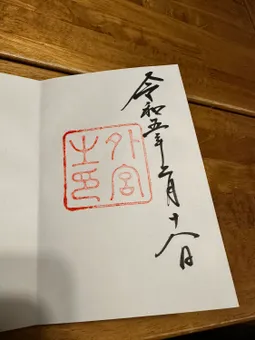 令和五年二月十八日
外宮
之印